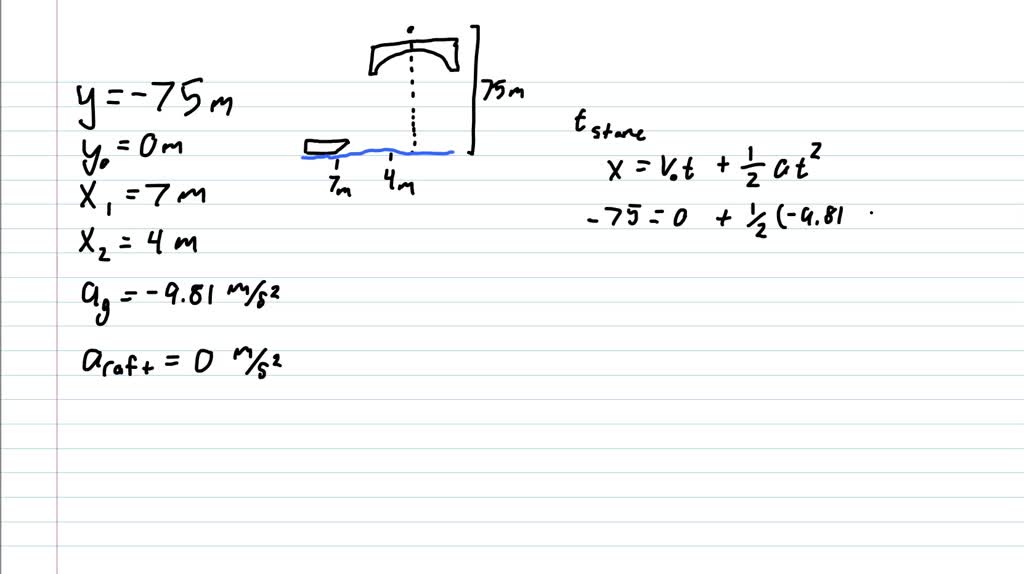 y = -75 m
y₀ = 0 m
x₁ = 7 m
x₂ = 4 m
a_g = -9.81 m/s²
a_raft = 0 m/s²
75 m
7m 4m
t_stone
x = V₀t + ½ at²
-75 = 0 + ½ (-9.81